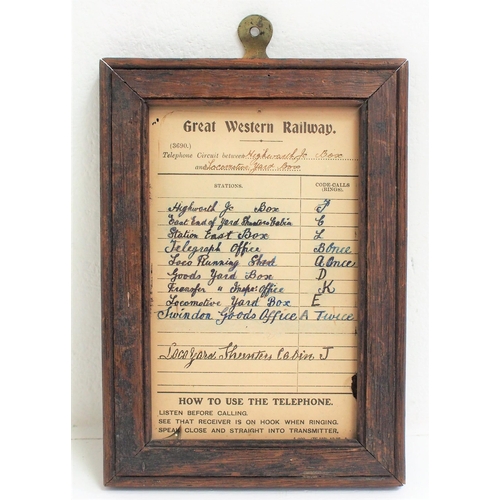 Great Western Railway.
(3690.)
Telephone Circuit between Highworth Jc Box
and Locomotive Yard Box
STATIONS. CODE-CALLS (RINGS).
Highworth Jc Box F
East End of Yard Shunters Cabin C
Station East Box L
Telegraph Office B Once
Loco Running Shed A Once
Goods Yard Box D
Transfer " Inspr: Office K
Locomotive Yard Box E
Swindon Goods Office A Twice
Loco Yard Shunters Cabin J
HOW TO USE THE TELEPHONE.
LISTEN BEFORE CALLING.
SEE THAT RECEIVER IS ON HOOK WHEN RINGING.
SPEAK CLOSE AND STRAIGHT INTO TRANSMITTER.